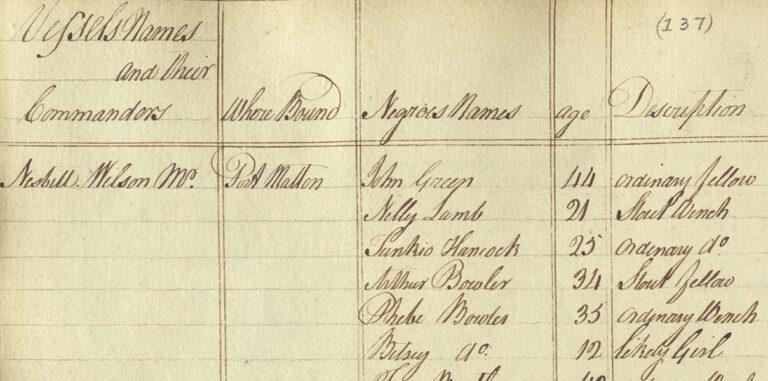 (137)
Vessels Names and their Commanders	Where Bound	Negroes Names	age	Description
Nesbitt. Wilson Mr.	Port Matton	John Green	44	ordinary fellow
Nelly Lamb	21	Stout Wench
Junkio Hancock	25	ordinary do.
Arthur Bowler	34	Stout fellow
Phebe Bowler	35	ordinary Wench
Betsey do.	12	likely Girl